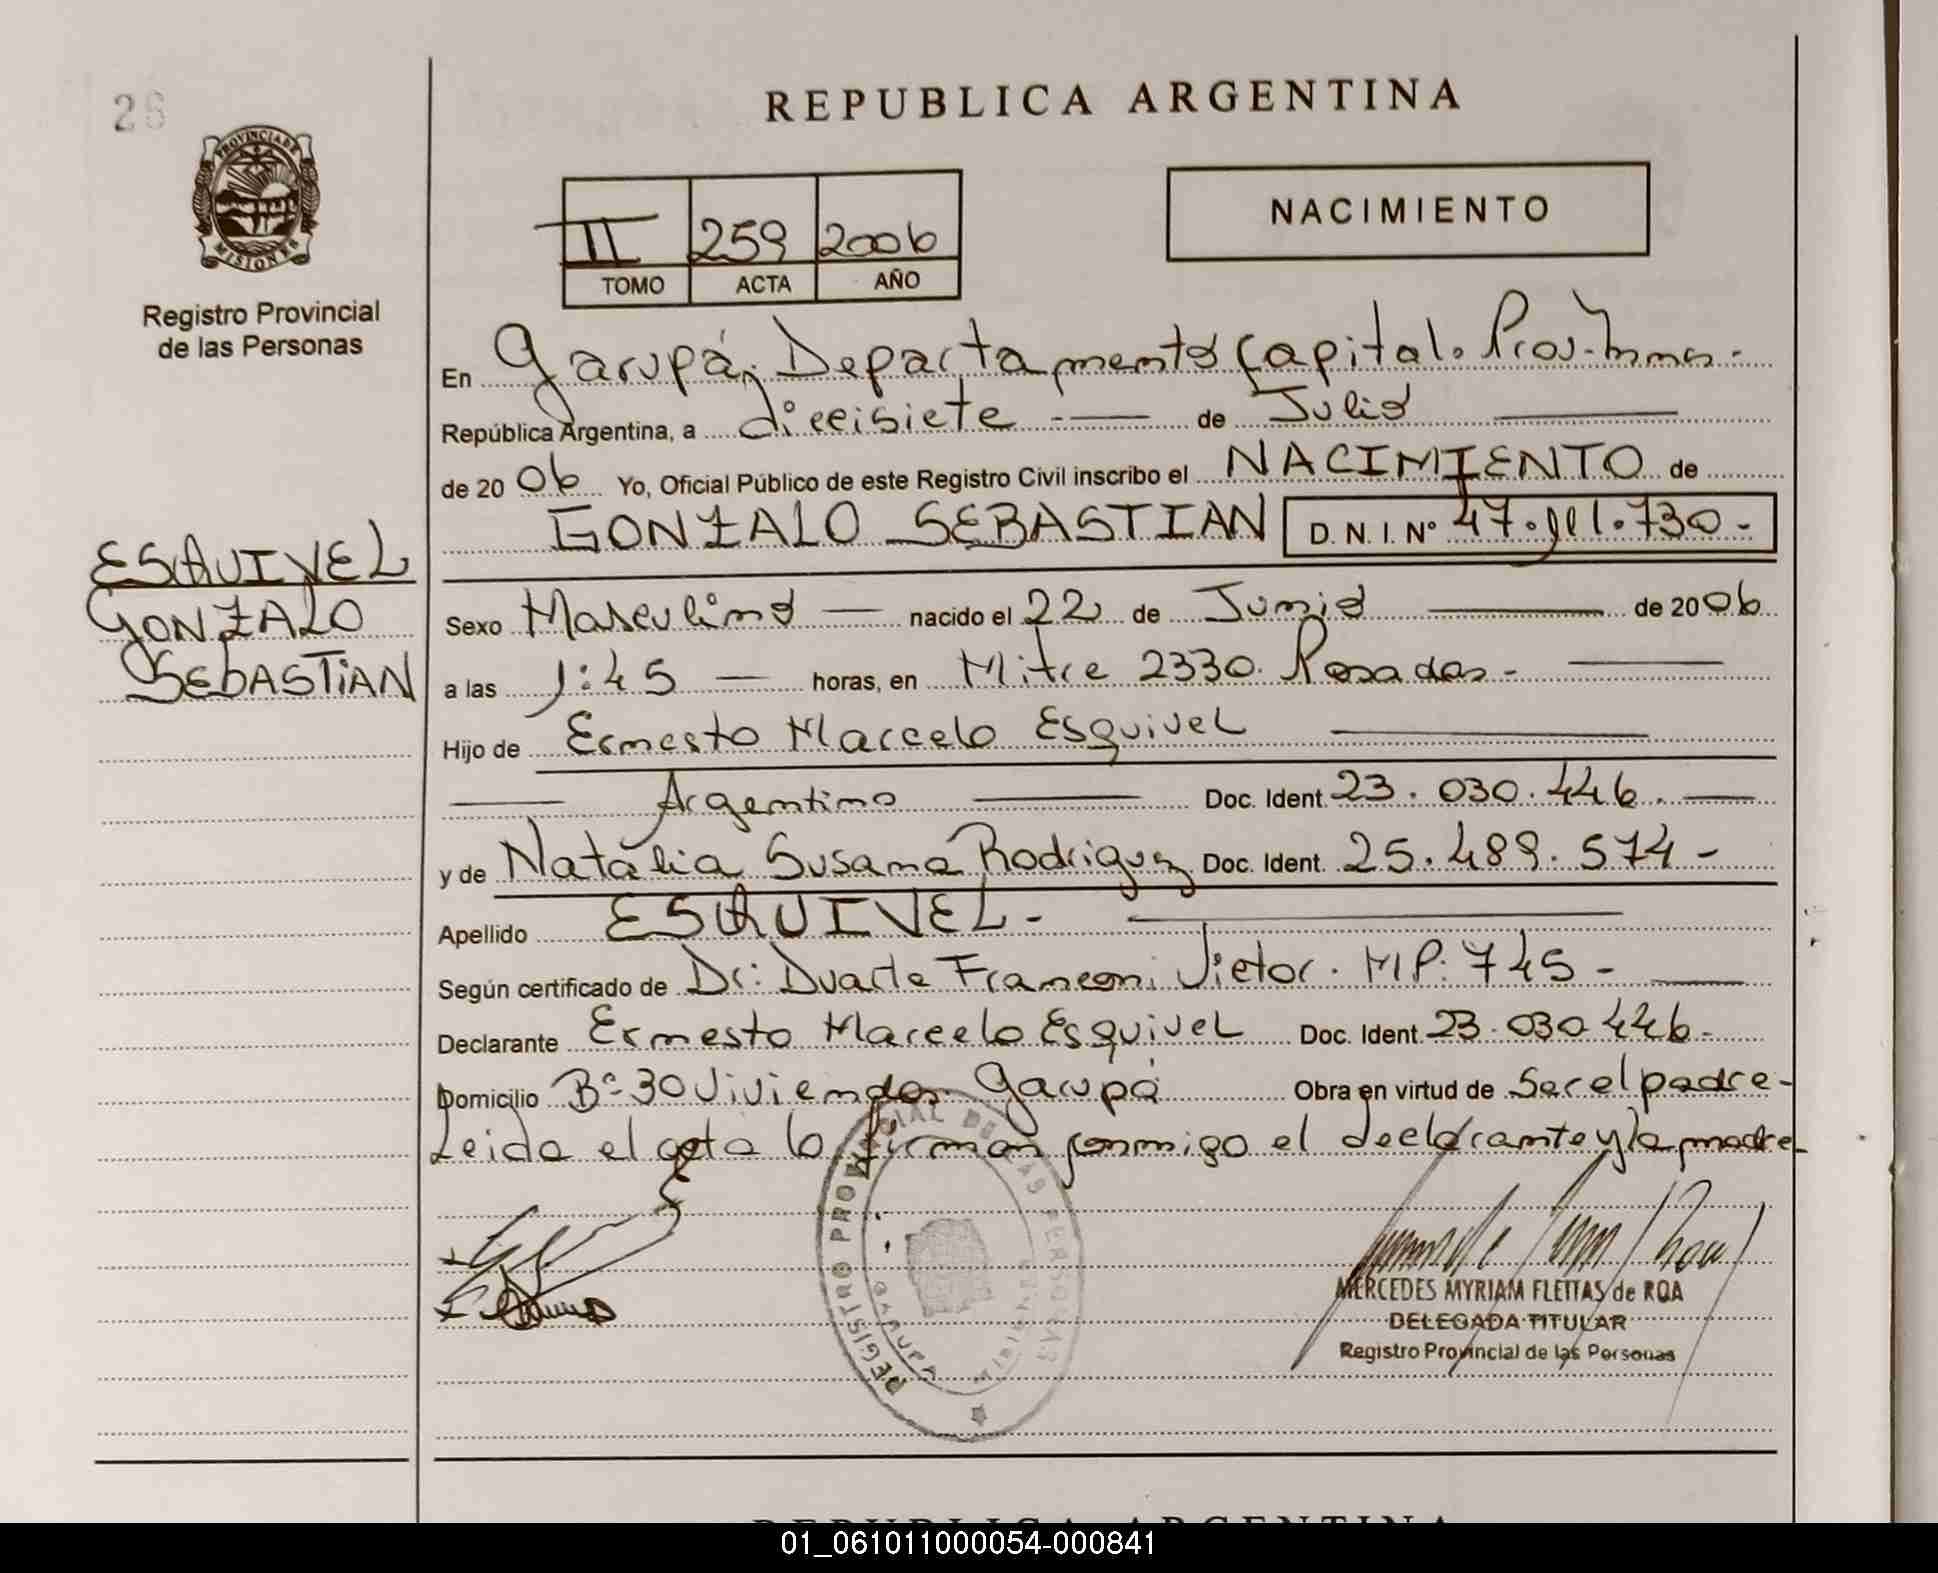 26
REPUBLICA ARGENTINA
PROVINCIA DE MISIONES
Registro Provincial
de las Personas
II 259 2006
TOMO ACTA AÑO
NACIMIENTO
En Garupá, Departamento Capital. Prov. Mnes.-
República Argentina, a diecisiete — de Julio —
de 2006 Yo, Oficial Público de este Registro Civil inscribo el NACIMIENTO de
GONZALO SEBASTIAN D. N. I. Nº 47. .730.-
ESQUIVEL
GONZALO
SEBASTIAN
Sexo Masculino — nacido el 22 de Junio — de 2006
a las 1:45 — horas, en Mitre 2330. Posadas.- —
Hijo de Ernesto Marcelo Esquivel —
— Argentino — Doc. Ident. 23.030.446. —
y de Natalia Susana Rodriguez Doc. Ident. 25.489.574-
Apellido ESQUIVEL.- —
Según certificado de Dr: Duarte Franconi Victor. MP: 745- —
Declarante Ernesto Marcelo Esquivel Doc. Ident. 23.030.446.-
Domicilio Bº 30 Viviendas Garupá Obra en virtud de Ser el padre-
Leida el acta lo firman conmigo el declarante y la madre-
REGISTRO PROVINCIAL DE LAS PERSONAS
GARUPA
MERCEDES MYRIAM FLEITAS de ROA
DELEGADA TITULAR
Registro Provincial de las Personas
REPUBLICA ARGENTINA
01_061011000054-000841